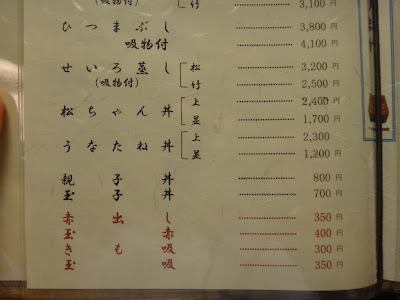 (吸物付) 竹 3,100円
ひつまぶし 3,800円
吸物付 4,100円
せいろ蒸し 松 3,200円
(吸物付) 竹 2,500円
松ちゃん丼 上 2,400円
並 1,700円
うなたね丼 上 2,300
並 1,200円
親子丼 800円
玉子丼 700円
赤出し 350円
玉赤 400円
きも吸 300円
玉吸 350円